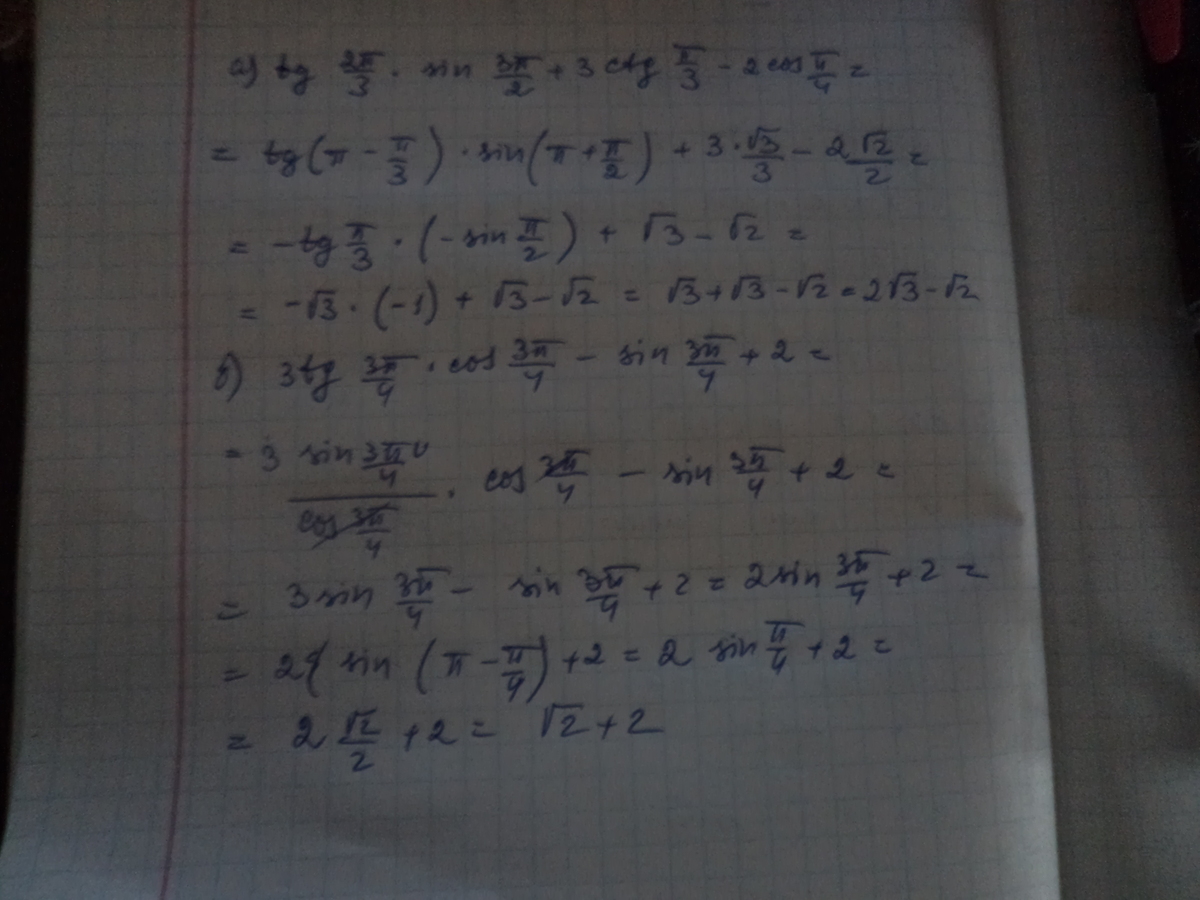 а) tg 2π/3 · sin 3π/2 + 3 ctg π/3 − 2 cos π/4 =
= tg(π − π/3) · sin(π + π/2) + 3 · √3/3 − 2 √2/2 =
= −tg π/3 · (−sin π/2) + √3 − √2 =
= −√3 · (−1) + √3 − √2 = √3 + √3 − √2 = 2√3 − √2
б) 3tg 3π/4 · cos 3π/4 − sin 3π/4 + 2 =
= 3 sin 3π/4 / cos 3π/4 · cos 3π/4 − sin 3π/4 + 2 =
= 3 sin 3π/4 − sin 3π/4 + 2 = 2 sin 3π/4 + 2 =
= 2 sin (π − π/4) + 2 = 2 sin π/4 + 2 =
= 2 √2/2 + 2 = √2 + 2